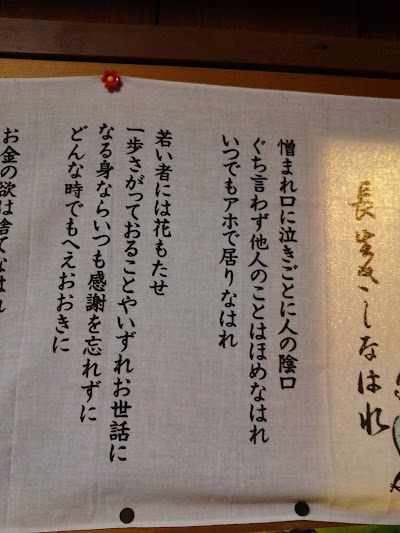 長生きしなはれ
憎まれ口に泣きごとに人の陰口
ぐち言わず他人のことはほめなはれ
いつでもアホで居りなはれ
若い者には花もたせ
一歩さがっておることやいずれお世話に
なる身ならいつも感謝を忘れずに
どんな時でもへえおおきに
お金の欲は捨てなはれ